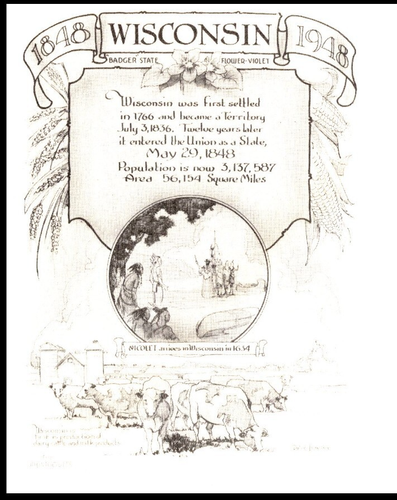 1848
WISCONSIN
1948
BADGER STATE
FLOWER-VIOLET
Wisconsin was first settled
in 1766 and became a Territory
July 3, 1836. Twelve years later
it entered the Union as a State,
May 29, 1848
Population is now 3,137,587
Area 56,154 Square Miles
NICOLET arrives in Wisconsin in 1634